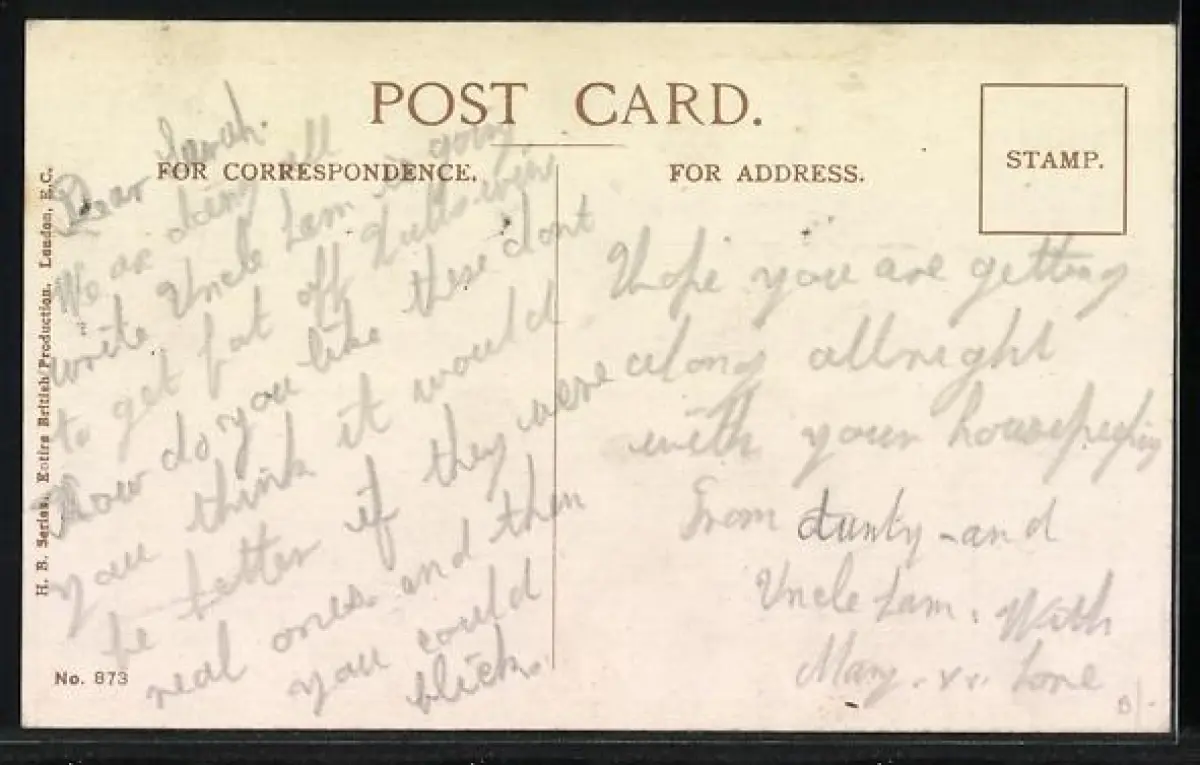 POST CARD.
FOR CORRESPONDENCE.
FOR ADDRESS.
STAMP.
H. B. Series, Entire British Production, London, E.C.
No. 873
Dear Sarah.
We ar doing well
write Uncle is going
to get fat off
How do you like these dont
you think it would
be better if they were
real ones and then
you could
Hope you are getting
along allright
with your
From Aunty and
Uncle With
Many Love